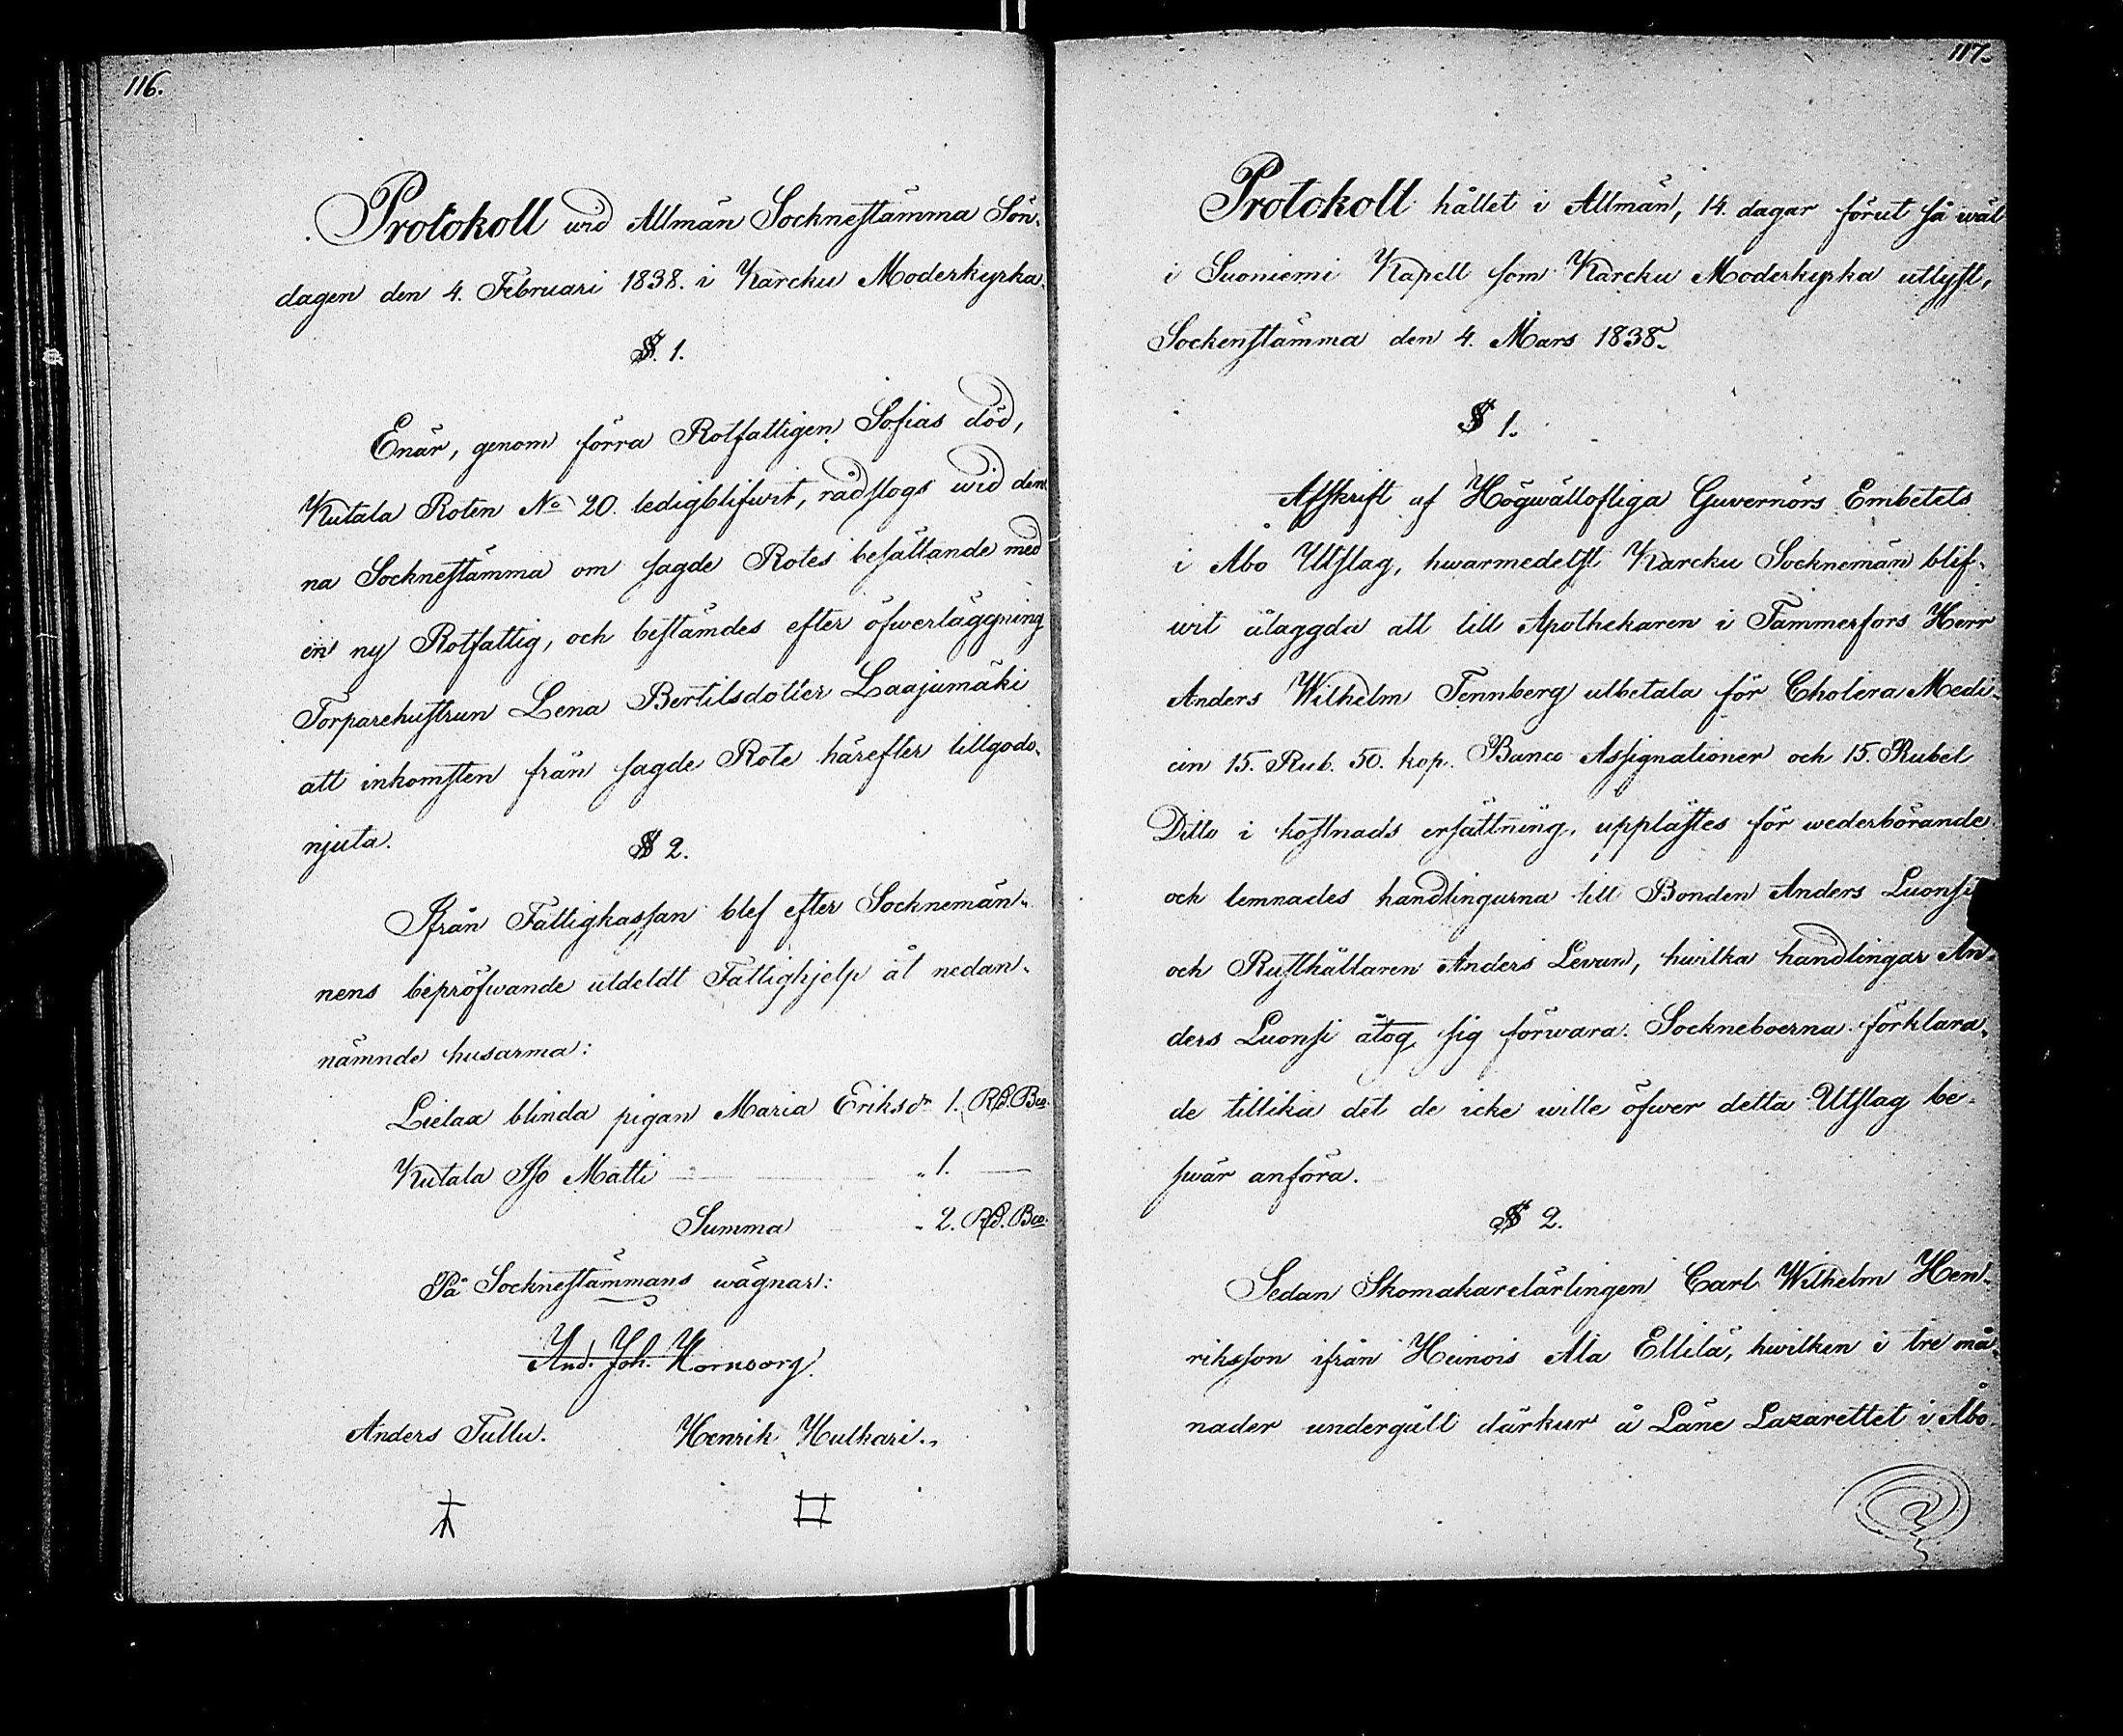 116.
Protokoll wid Allmän Socknestämma Sön-
dagen den 4. Februari 1838. i Karcku Moderkyrka.
§. 1.
Enär, genom förra Rotfattigen Sofias död,
Kutala Roten No 20. ledigblifwit, rådslogs wid den
na Socknestämma om sagde Rotes besättande med
en ny Rotfattig, och bestämdes efter öfwerläggning
Torparehustrun Lena Bertilsdotter Laajumäki
att inkomsten från sagde Rote härefter tillgodo-
njuta.
§ 2.
Ifrån Fattigkassan blef efter Socknemän-
nens bepröfwande utdeldt Fattighjelp åt nedan-
nämnde husarma:
Lielax blinda pigan Maria Eriksdr 1. Rd. Bco.
Kutala Iso Matti " 1. —
Summa " 2. Rd. Bco.
På Socknestämmans wägnar:
And. Joh. Hornborg.
Anders Tullu. Henrik Hulkari.
117.
Protokoll hållet i Allmän, 14. dagar förut så wäl
i Suoniemi Kapell som Karcku Moderkyrka utlyst,
Sockenstämma den 4. Mars 1838.
§ 1.
Afskrift af Högwällofliga Guvernörs Embetets
i Åbo Utslag, hwarmedelst Karcku Socknemän blif-
wit ålaggda att till Apothekaren i Tammerfors Herr
Anders Wilhelm Tennberg utbetala för Cholera Medi-
cin 15. Rub. 50. kop. Banco Assignationer och 15. Rubel
Ditto i kostnads ersättning, upplästes för wederbörande
och lemnades handlingarna till Bonden Anders Luonsi
och Rusthållaren Anders Levun, hwilka handlingar An-
ders Luonsi åtog sig förwara. Sockneboerna förklara-
de tillika det de icke wille öfwer detta Utslag be-
swär anföra.
§ 2.
Sedan Skomakarelärlingen Carl Wilhelm Hen-
riksson ifrån Heinois Ala Ellilä, hwilken i tre må-
nader undergått därkur å Läne Lazarettet i Åbo